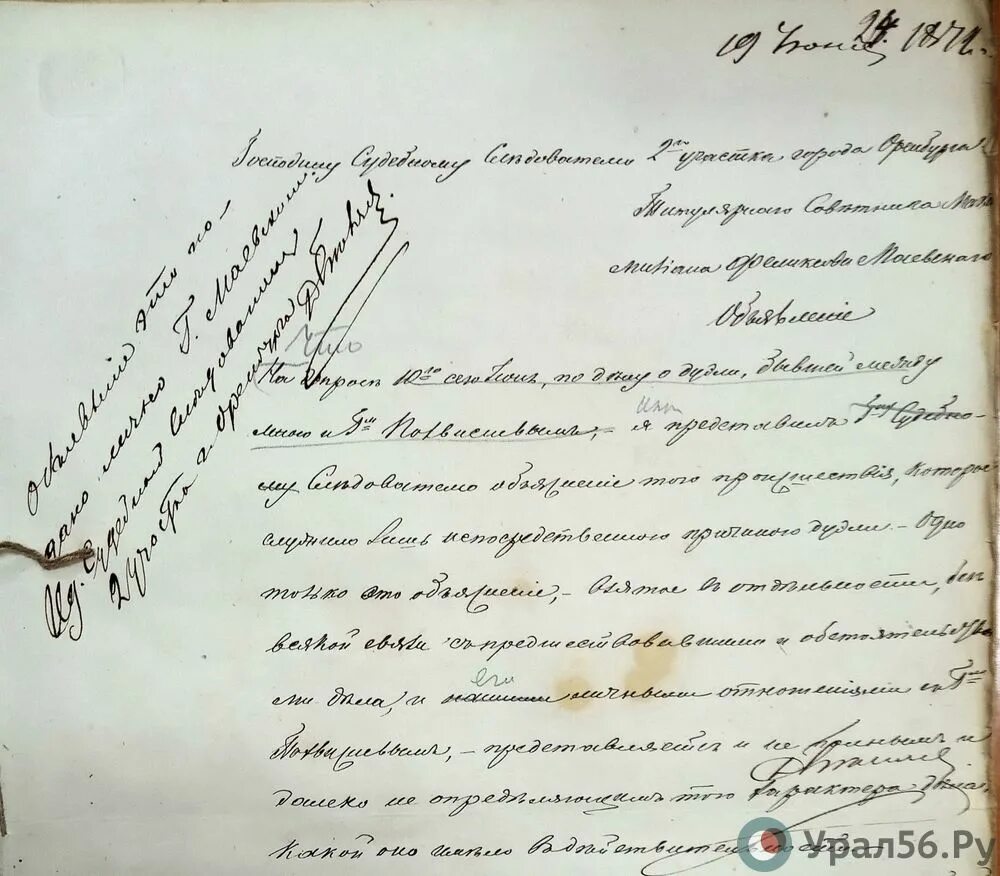 19 Июня 24. 1871 г.
Господину Судебному Слѣдователю 2го участка города Оренбурга
Титулярнаго Совѣтника
Феликсова Маевскаго
Объявленіе
Что
На вопросъ 10го сего Іюня, по дѣлу о дуэли, бывшей между
мною и Гмъ Похвисневымъ, – я представилъ Судебно-
му Слѣдователю объясненіе того происшествія, которое
служило лишь непосредственною причиною дуэли. – Одно
только это объясненіе, – взятое въ отдѣльности, безъ
всякой связи съ предшествовавшими обстоятельства-
ми дѣла, и личными отношеніями съ Гмъ
его
Похвисневымъ, – представляется и не полнымъ и
далеко не опредѣляющимъ того характера дѣла,
какой оно имѣло въ дѣйствительности –
Объявленіе это по-
дано лично Г. Маевскимъ.
Ид. Судебный Слѣдователь
2 участка г. Оренбурга
Урал56.Ру